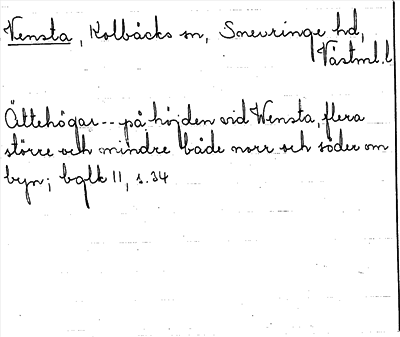 Vensta, Kolbäcks sn, Snevringe hd,
Västml.l.
Ättehögar -- på höjden vid Wensta, flera
större och mindre både norr och söder om
byn; bqlk 11, s.34